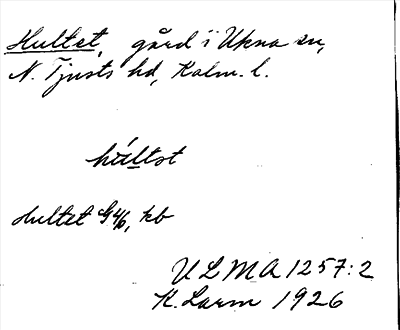 Hultet, gård i Ukna sn,
N. Tjusts hd, Kalm. l.
Hultet G 4/6, kb
ULMA 1257:2
K. Larm 1926